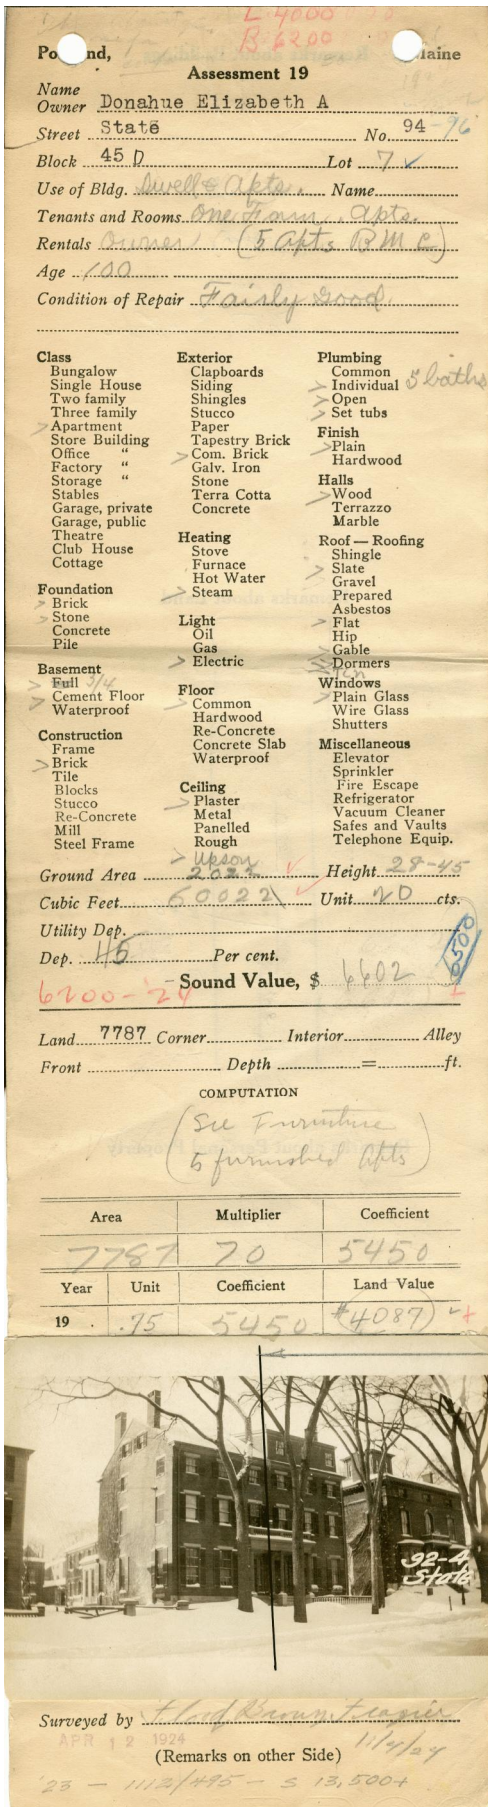 L 4000
B 6200
Po nd, Maine
Assessment 19
Name
Owner Donahue Elizabeth A
Street State No. 94-96
Block 45 D Lot 7 ✓
Use of Bldg. Dwell & Apts. Name
Tenants and Rooms One Fam. Apts.
Rentals Owner (5 Apts B M C)
Age 100
Condition of Repair Fairly Good
Class
Bungalow
Single House
Two family
Three family
> Apartment
Store Building
Office "
Factory "
Storage "
Stables
Garage, private
Garage, public
Theatre
Club House
Cottage
Foundation
> Brick
> Stone
Concrete
Pile
Basement
> Full 3/4
> Cement Floor
> Waterproof
Construction
Frame
> Brick
Tile
Blocks
Stucco
Re-Concrete
Mill
Steel Frame
Exterior
Clapboards
Siding
Shingles
Stucco
Paper
Tapestry Brick
> Com. Brick
Galv. Iron
Stone
Terra Cotta
Concrete
Heating
Stove
Furnace
Hot Water
> Steam
Light
Oil
Gas
> Electric
Floor
> Common
Hardwood
Re-Concrete
Concrete Slab
Waterproof
Ceiling
> Plaster
Metal
Panelled
Rough
> Upson
Plumbing
Common
> Individual 5 baths
> Open
> Set tubs
Finish
> Plain
Hardwood
Halls
> Wood
Terrazzo
Marble
Roof — Roofing
Shingle
> Slate
Gravel
Prepared
Asbestos
> Flat
Hip
> Gable
> Dormers
> Tin
Windows
> Plain Glass
Wire Glass
Shutters
Miscellaneous
Elevator
Sprinkler
Fire Escape
Refrigerator
Vacuum Cleaner
Safes and Vaults
Telephone Equip.
Ground Area 2022 ✓ Height 28-45
Cubic Feet 60022 ✓ Unit 20 cts.
Utility Dep.
Dep. 45 Per cent. 6500
6200-'24 Sound Value, $ 6602
Land 7787 Corner Interior Alley
Front Depth = ft.
COMPUTATION
(See Furniture
5 furnished Apts)
Area Multiplier Coefficient
7787 70 5450
Year Unit Coefficient Land Value
19 .75 5450 $4087 ✓
92-4
State
Surveyed by
APR 12 1924 11/4/24
(Remarks on other Side)
'23 - 1112/495 - S 13,500+